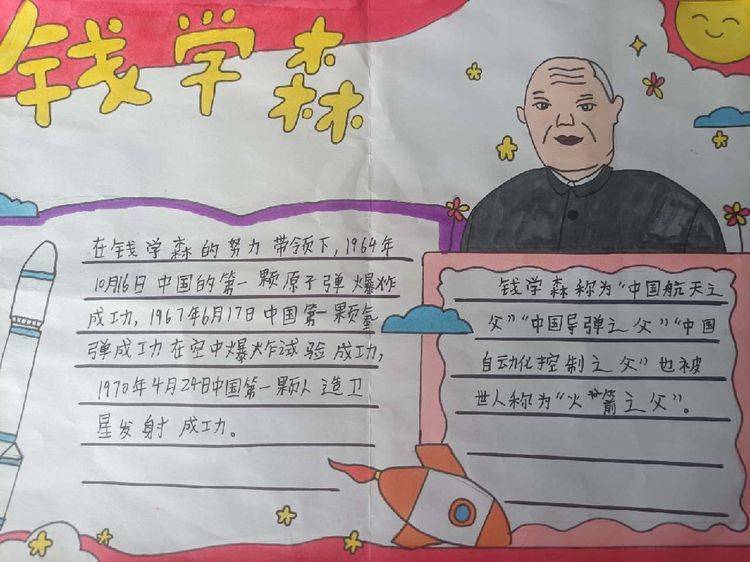 钱学森
在钱学森的努力带领下,1964年
10月16日中国的第一颗原子弹爆炸
成功,1967年6月17日中国第一颗氢
弹成功在空中爆炸试验成功,
1970年4月24日中国第一颗人造卫
星发射成功。
钱学森称为“中国航天之
父”“中国导弹之父”“中国
自动化控制之父”也被
世人称为“火箭之父”。